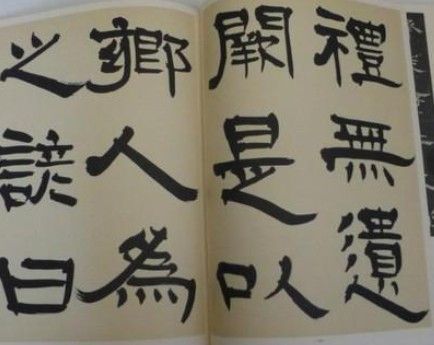 禮無遺
闕是以
鄉人為
之諺曰